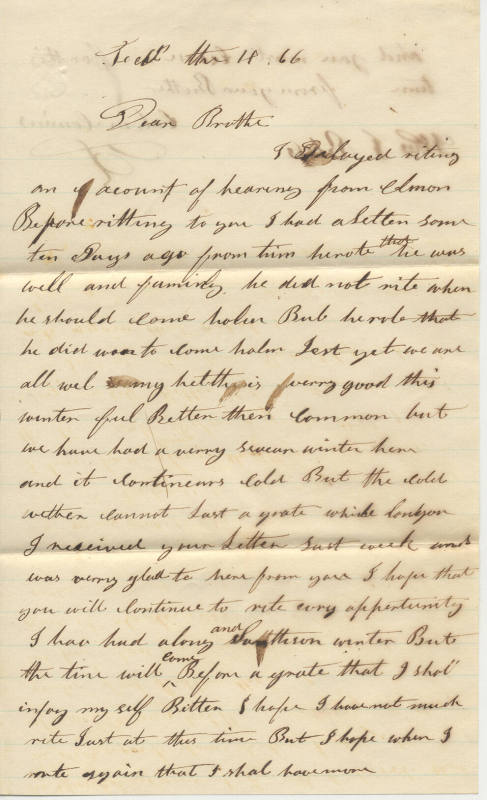 Feb the 18. 66
Dear Brothe
I Delayed riting
on acount of hearing from Elmon
Before ritting to you I had a Letter some
ten Days ago from him he rote that he was
well and familey he did not rite when
he should Come holm But he rote that
he did not want to Come holm Jest yet we are
all wel my helth is verry good this
winter feel Better then Common but
we have had a verry sevear winter here
and it Continears Cold But the Cold
wether Cannot Last a grate while longer
I received your Letter Last week and
was verry glad to here from you I hope that
you will Continue to rite evry oppertunity
I hav had a long and winter But
the time will Come Before a grate that I shal
injoy my self Bitter I hope I have not much
rite Just at this time But I hope when I
rite again that I shal have more